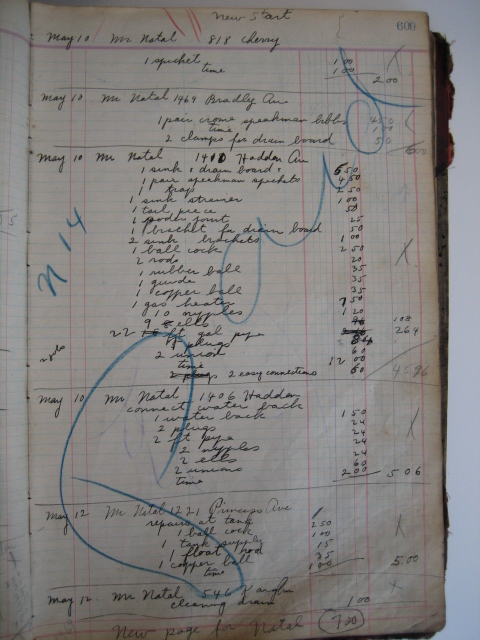 New Start
600
May 10 Mr Natal 818 Cherry
1 spicket 1 00
time 1 00 2 00
May 10 Mr Natal 1469 Bradly Ave
1 pair crome speakman bibbs
time
2 clamps for drain board 50
May 10 Mr Natal 1410 Hadden Ave
1 sink & drain board 6 50
1 pair speakman spickets 4 50
1 trap 2 50
1 sink strainer 1 00
1 tail piece 50
1 soder joint 25
1 bracket for drain board 50
2 sink brackets 1 00
1 ball cock 2 50
2 rods 20
1 rubber ball 35
1 guide 35
1 copper ball 35
1 gas heater 7 50
10 nypples 1 20
9 ells 108
22 ft gal pipe 264
plugs 84
2 union 60
time 12 00
2 easy connections 60
May 10 Mr Natal 1406 Hadden
connect water back
1 water back 1 50
2 plugs 24
2 ft pipe 24
2 nypples 24
2 ells 24
2 unions 60
time 2 00 5 06
May 12 Mr Natal 1221 Princess Ave
repairs at tank
1 ball cock 2 50
1 tank supply 1 00
1 float rod 15
1 copper ball 35
time 1 00 5.00
May 12 Mr Natal 546
cleaning drain 1 00
New page for Natal 7 00
N 14